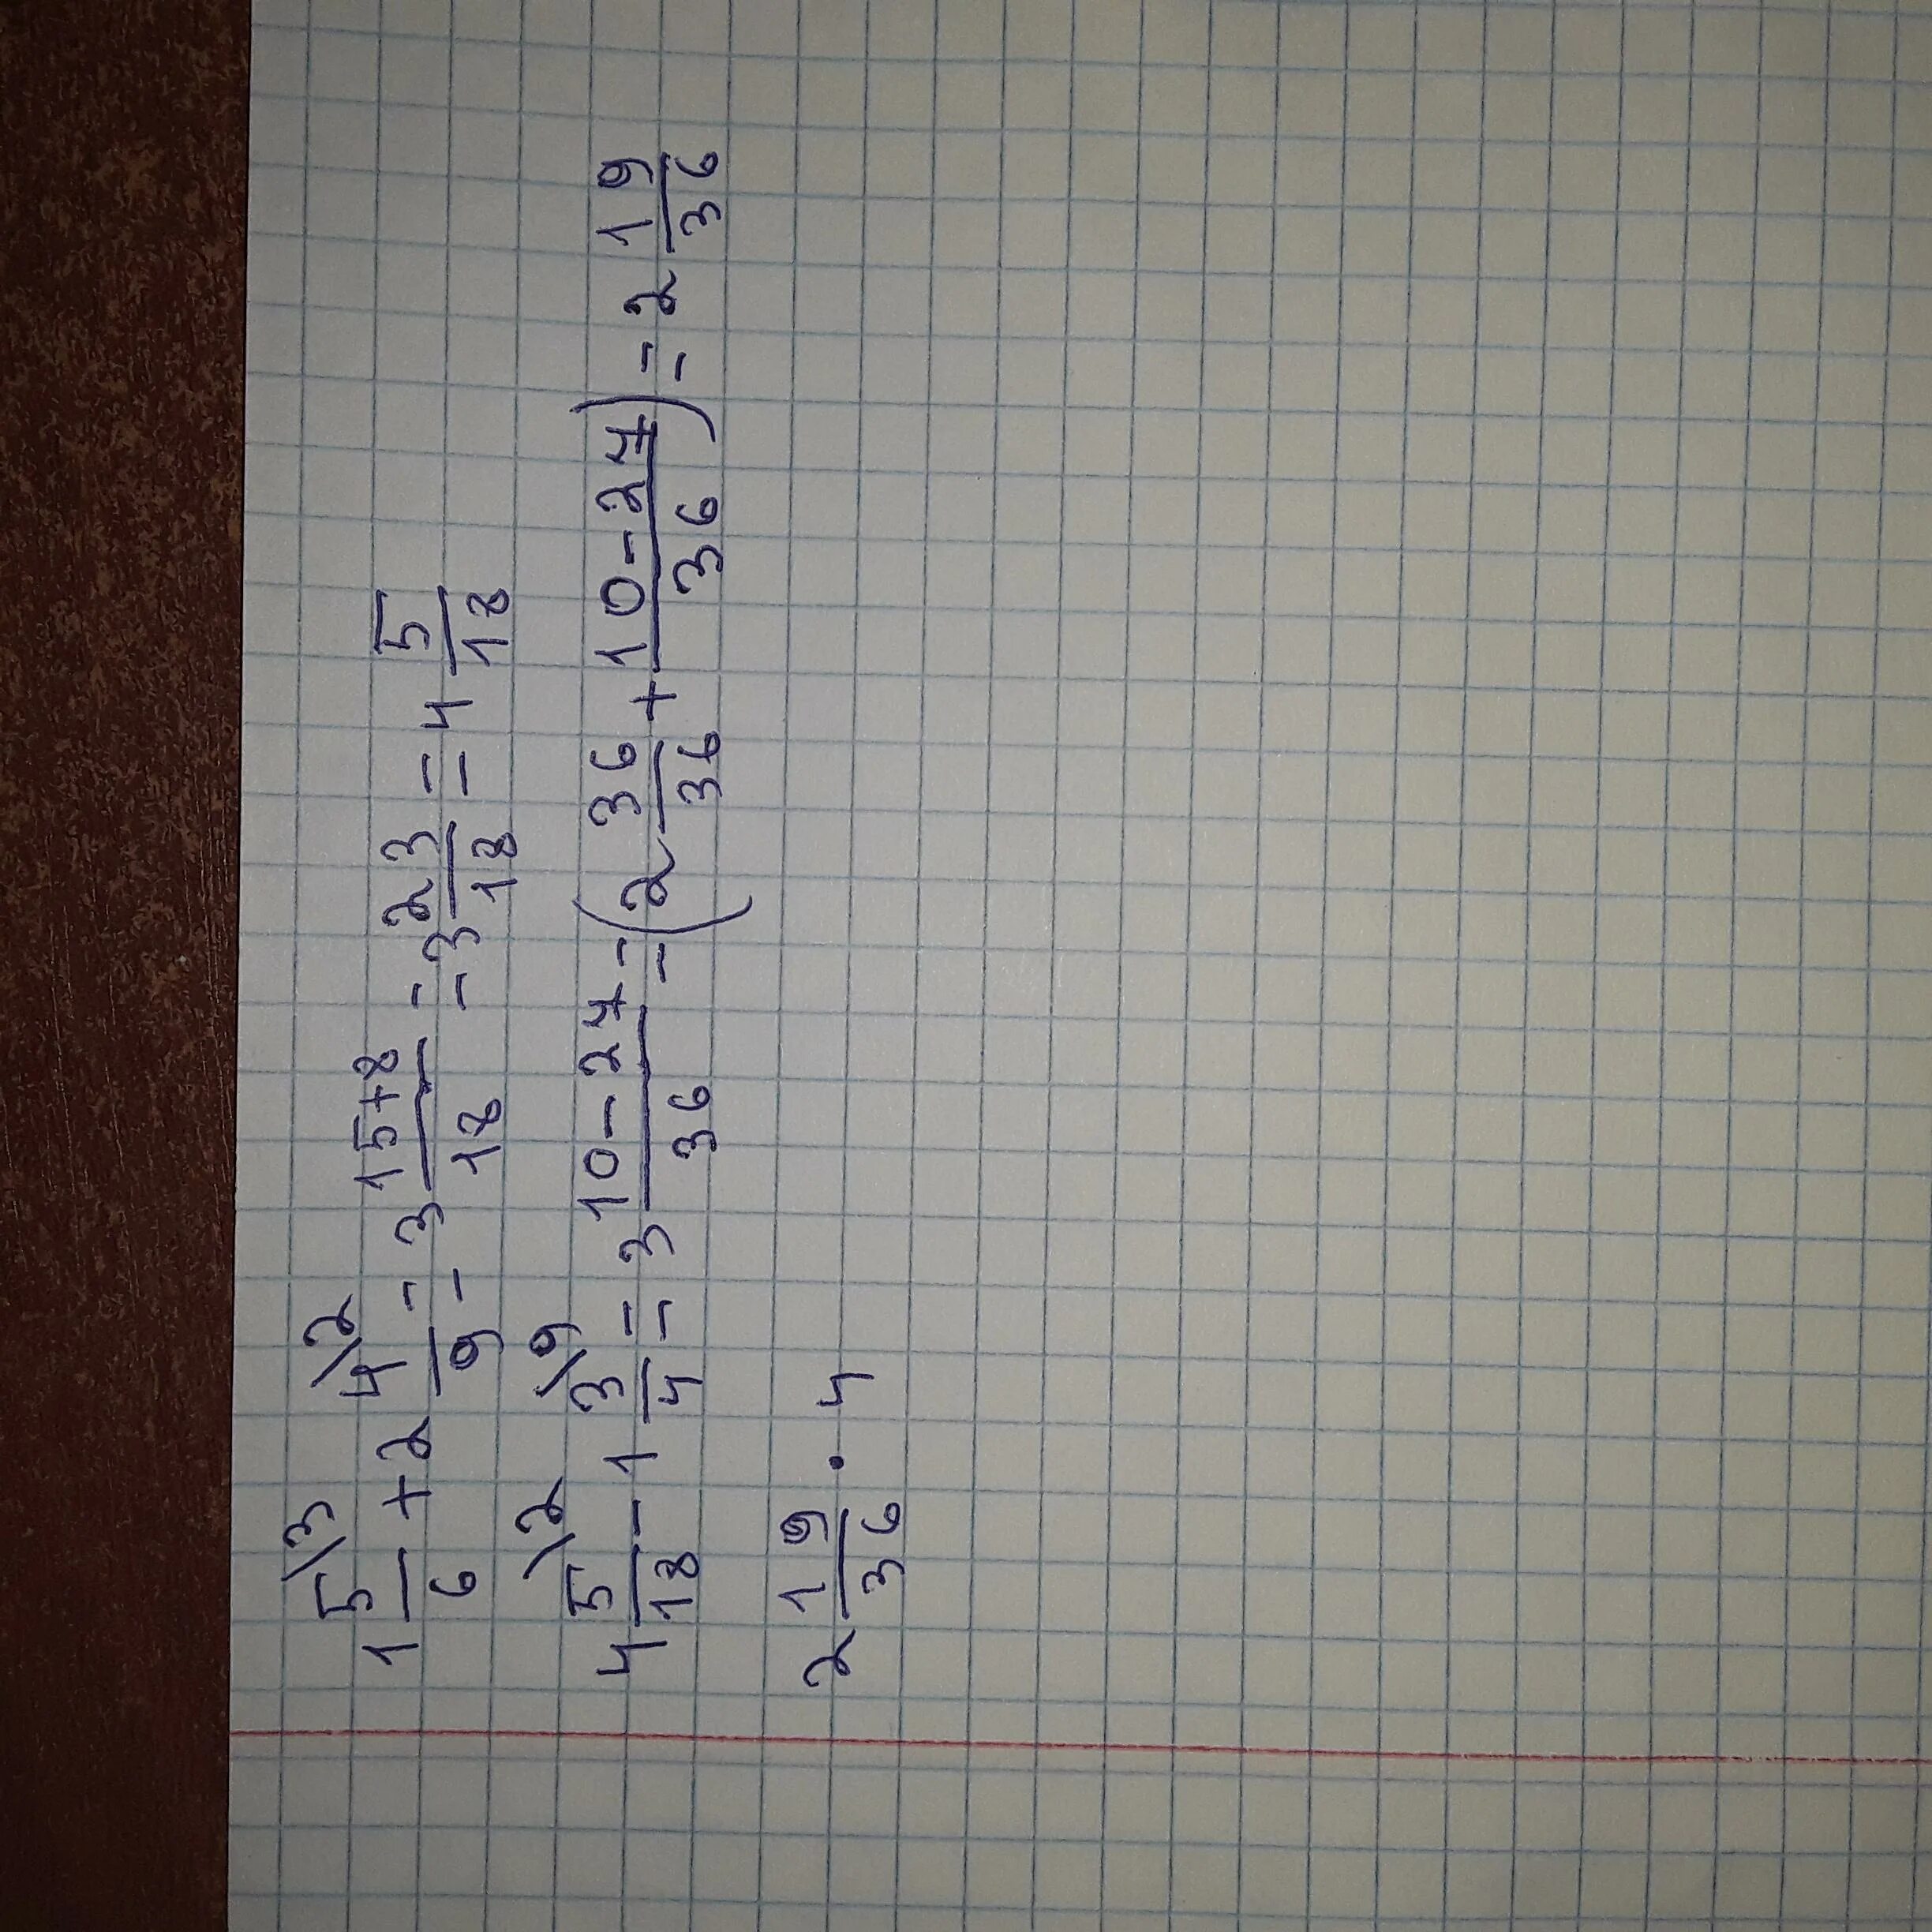 1 5\3/6 + 2 4\2/9 = 3 15+8/18 = 3 23/18 = 4 5/18
4 5\2/18 - 1 3\9/4 = 3 10-27/36 = (2 36/36 + 10-27/36) = 2 19/36
2 19/36 · 4